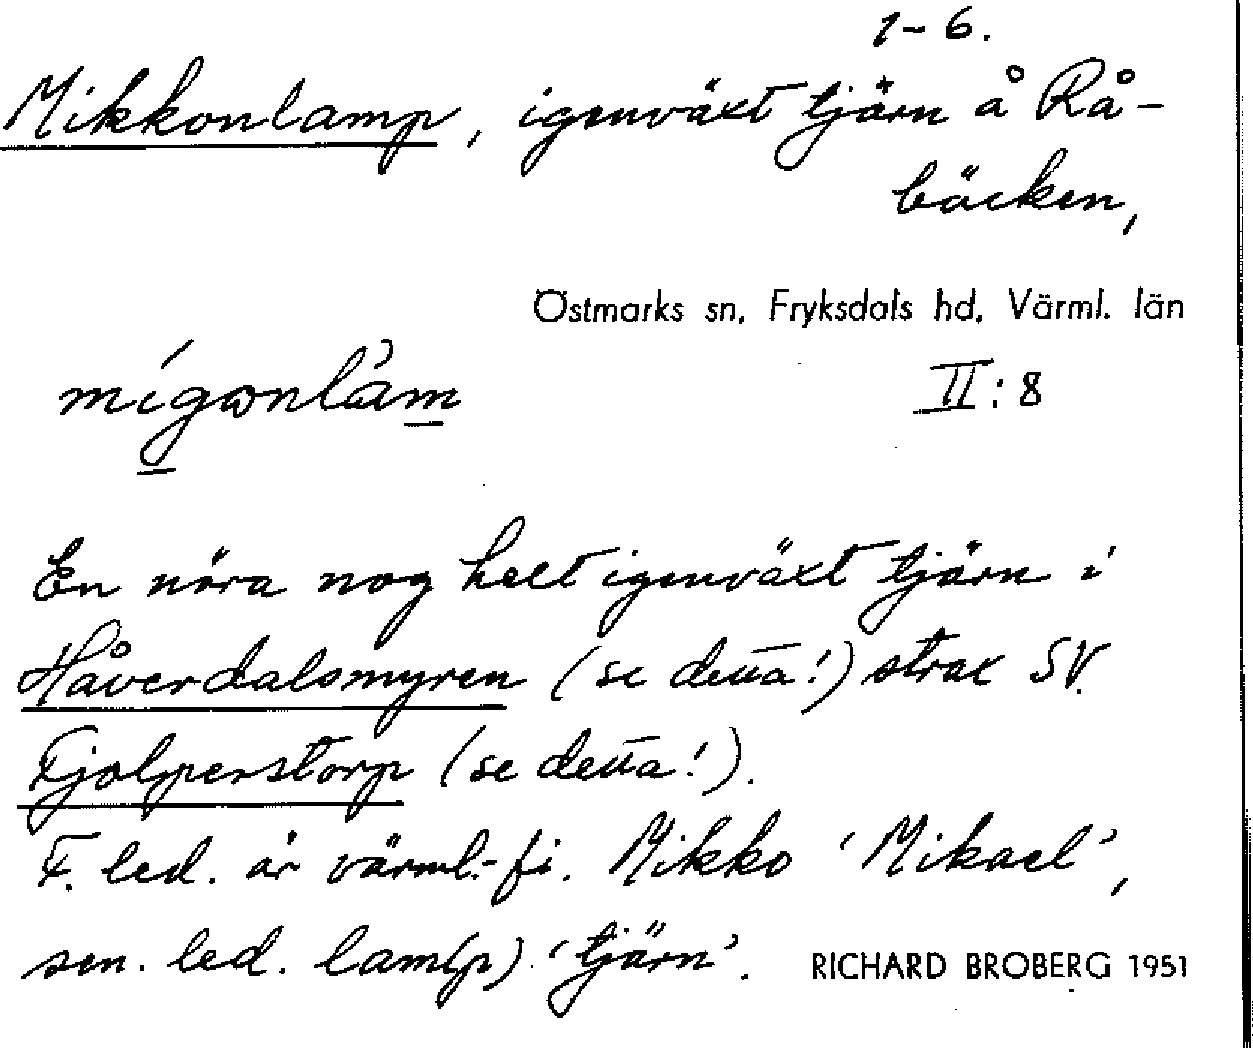 1-6.
Mikkonlamp, igenväxt tjärn å Rå-
bäcken,
Östmarks sn, Fryksdals hd, Värml. län
II:8
En nära nog helt igenväxt tjärn i
Håverdalsmyren (se detta!) strax SV.
Fjolperstorp (se detta!).
F. led. är värml.-fi. Mikko 'Mikael',
sen. led. lam(p) 'tjärn'. RICHARD BROBERG 1951